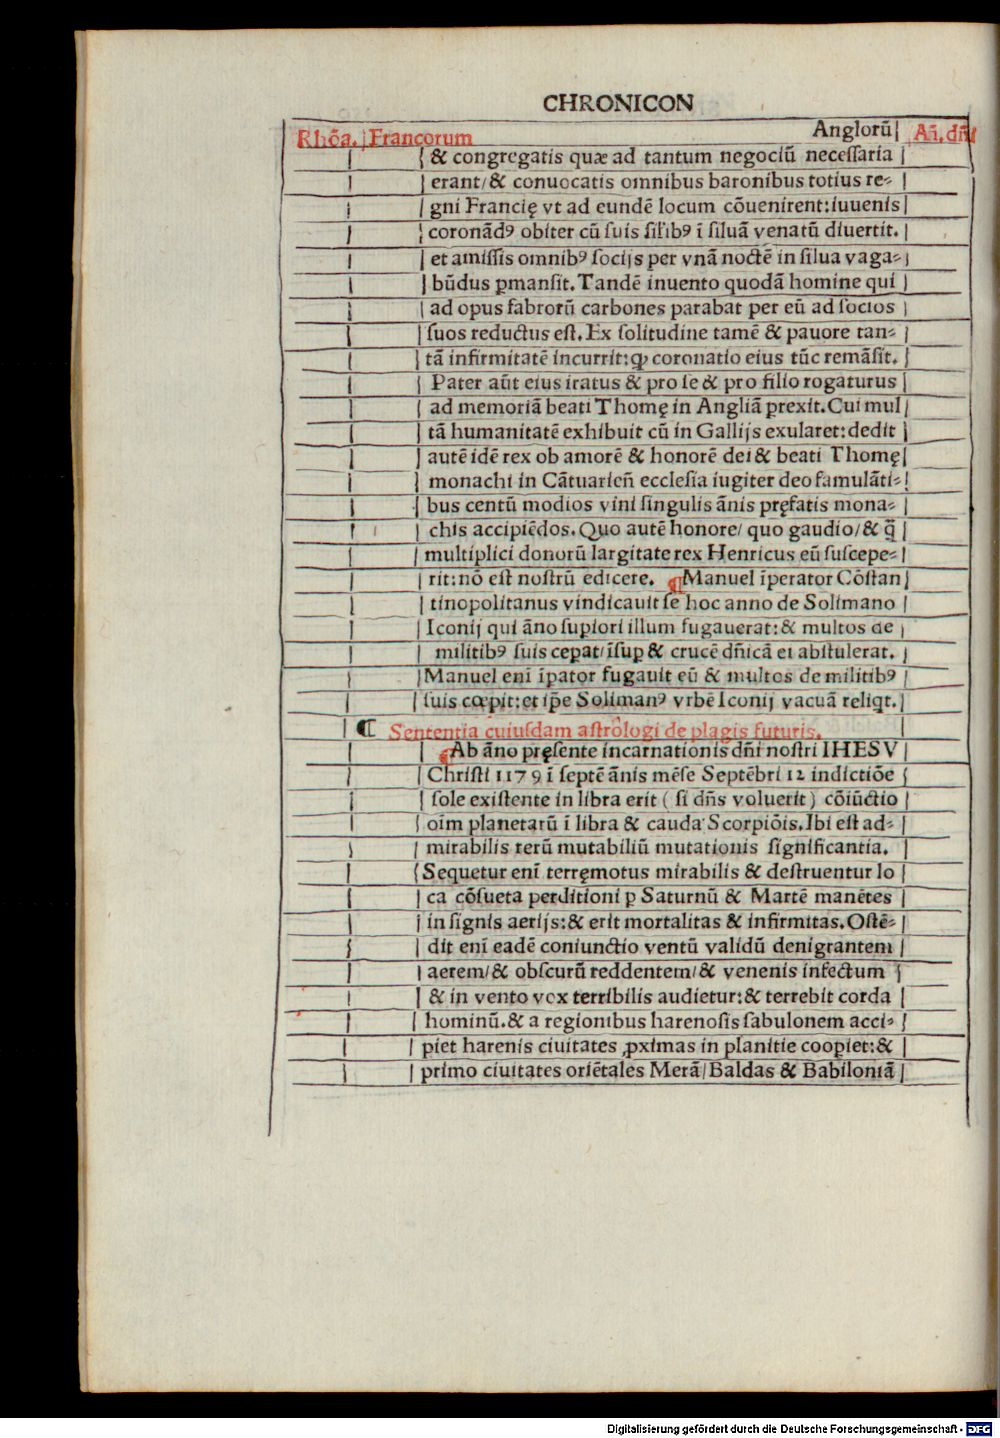 CHRONICON
Rhōa. Francorum Anglorū Añ. dñi
& congregatis quæ ad tantum negociū necessaria
erant/& conuocatis omnibus baronibus totius re-
gni Francię vt ad eundē locum cōuenirent:iuuenis
coronādꝰ obiter cū suis silibꝰ ī siluā venatū diuertit.
et amissis omnibꝰ socijs per vnā noctē in silua vaga-
būdus ꝑmansit. Tandē inuento quodā homine qui
ad opus fabrorū carbones parabat per eū ad socios
suos reductus est. Ex solitudine tamē & pauore tan-
tā infirmitatē incurrit:ꝙ coronatio eius tūc remāsit.
Pater aūt eius iratus & pro se & pro filio rogaturus
ad memoriā beati Thomę in Angliā ꝓexit. Cui mul
tā humanitatē exhibuit cū in Gallijs exularet:dedit
autē idē rex ob amorē & honorē dei & beati Thomę
monachi in Cātuarieñ ecclesia iugiter deo famulāti-
bus centū modios vini singulis ānis pręfatis mona-
chis accipiēdos. Quo autē honore/ quo gaudio/& q̃
multiplici donorū largitate rex Henricus eū suscepe-
rit:nō est nostrū edicere. ¶Manuel īperator Cōstan
tinopolitanus vindicauit se hoc anno de Solimano
Iconij qui āno supiori illum fugauerat:& multos de
militibꝰ suis ceꝑat/īsuꝑ & crucē dñicā ei abstulerat.
Manuel enī īꝑator fugauit eū & multos de militibꝰ
suis cœpit:et ip̄e Solimanꝰ vrbē Iconij vacuā reliqt.
¶ Sententia cuiusdam astrologi de plagis futuris.
¶Ab āno pręsente incarnationis dñi nostri IHESV
Christi 1179 ī septē ānis mēse Septēbri 12 indictiōe
sole existente in libra erit ( si dñs voluerit ) cōiūctio
oīm planetarū ī libra & cauda Scorpiōis. Ibi est ad-
mirabilis rerū mutabiliū mutationis significantia.
Sequetur enī terręmotus mirabilis & destruentur lo
ca cōsueta perditioni ꝑ Saturnū & Martē manētes
in signis aerijs:& erit mortalitas & infirmitas. Ostē-
dit enī eadē coniunctio ventū validū denigrantem
aerem/& obscurū reddentem/& venenis infectum
& in vento vox terribilis audietur:& terrebit corda
hominū.& a regionibus harenosis sabulonem acci-
piet harenis ciuitates ꝓximas in planitie cooꝑiet:&
primo ciuitates oriētales Merā/Baldas & Babiloniā
Digitalisierung gefördert durch die Deutsche Forschungsgemeinschaft - DFG